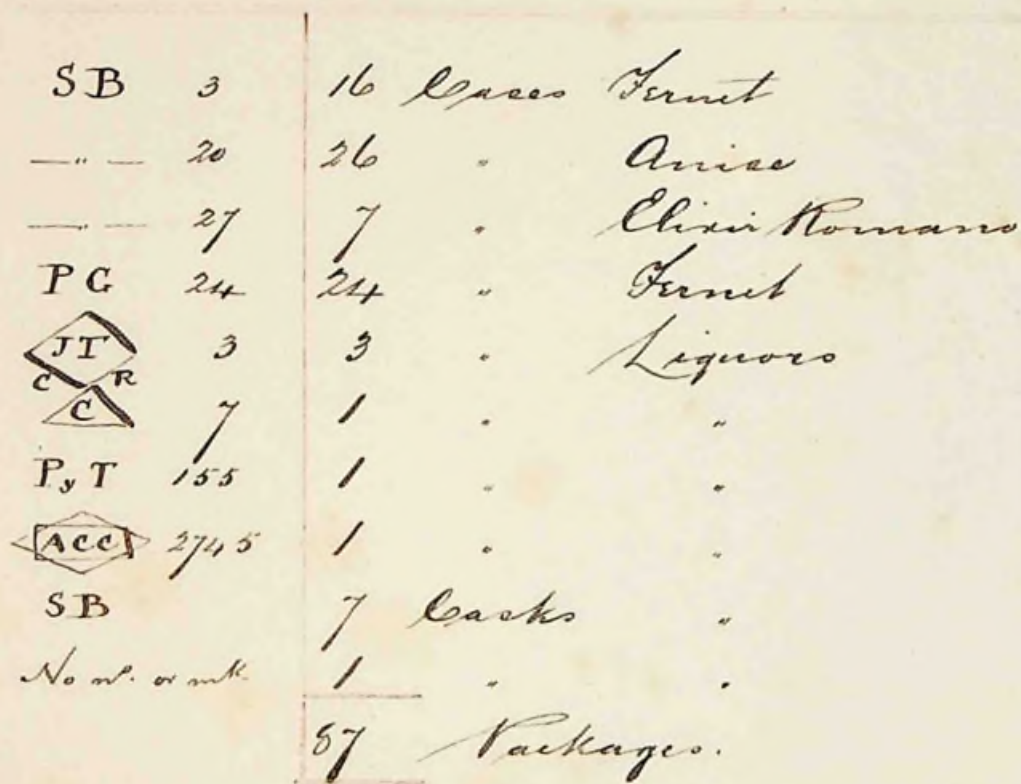 SB 3 16 Cases Fernet
—"— 20 26 " Anise
—"— 27 7 " Elixir Romano
PG 24 24 " Fernet
JT C R 3 3 " Liquors
C 7 1 " "
PyT 155 1 " "
ACC 2745 1 " "
SB 7 Casks "
No nº. or mk. 1 " "
87 Packages.